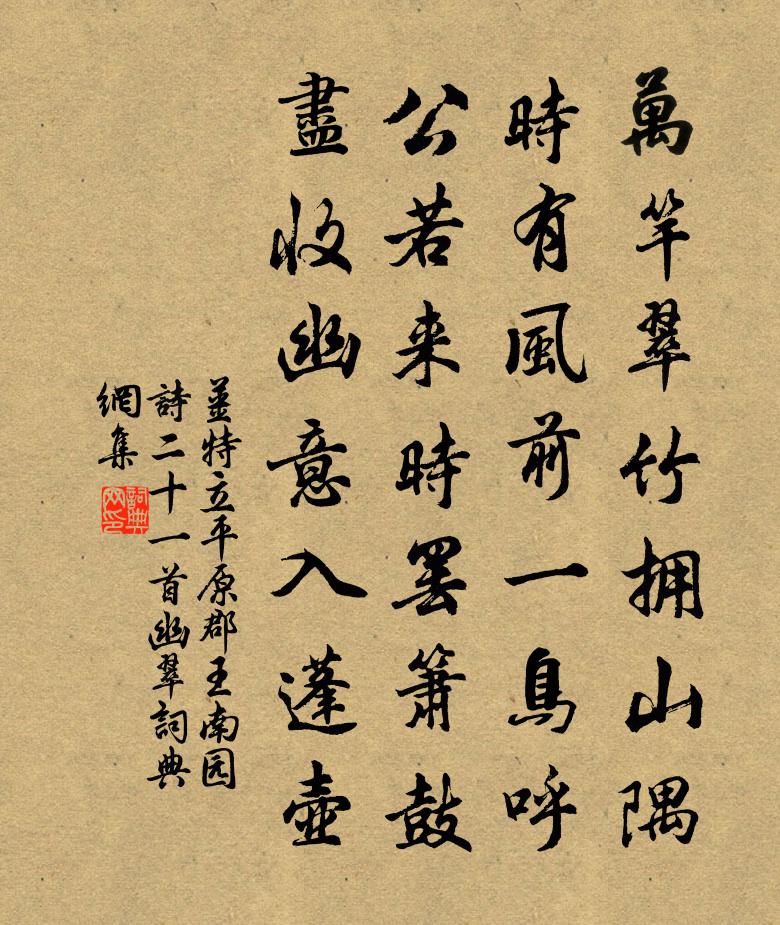 萬竿翠竹拥山隅
時有風前一鳥呼
公若来時罢簫鼓
盡收幽意入蓬壺
姜特立平原郡王南园
詩二十一首幽翠詞典
網集
詞典网印